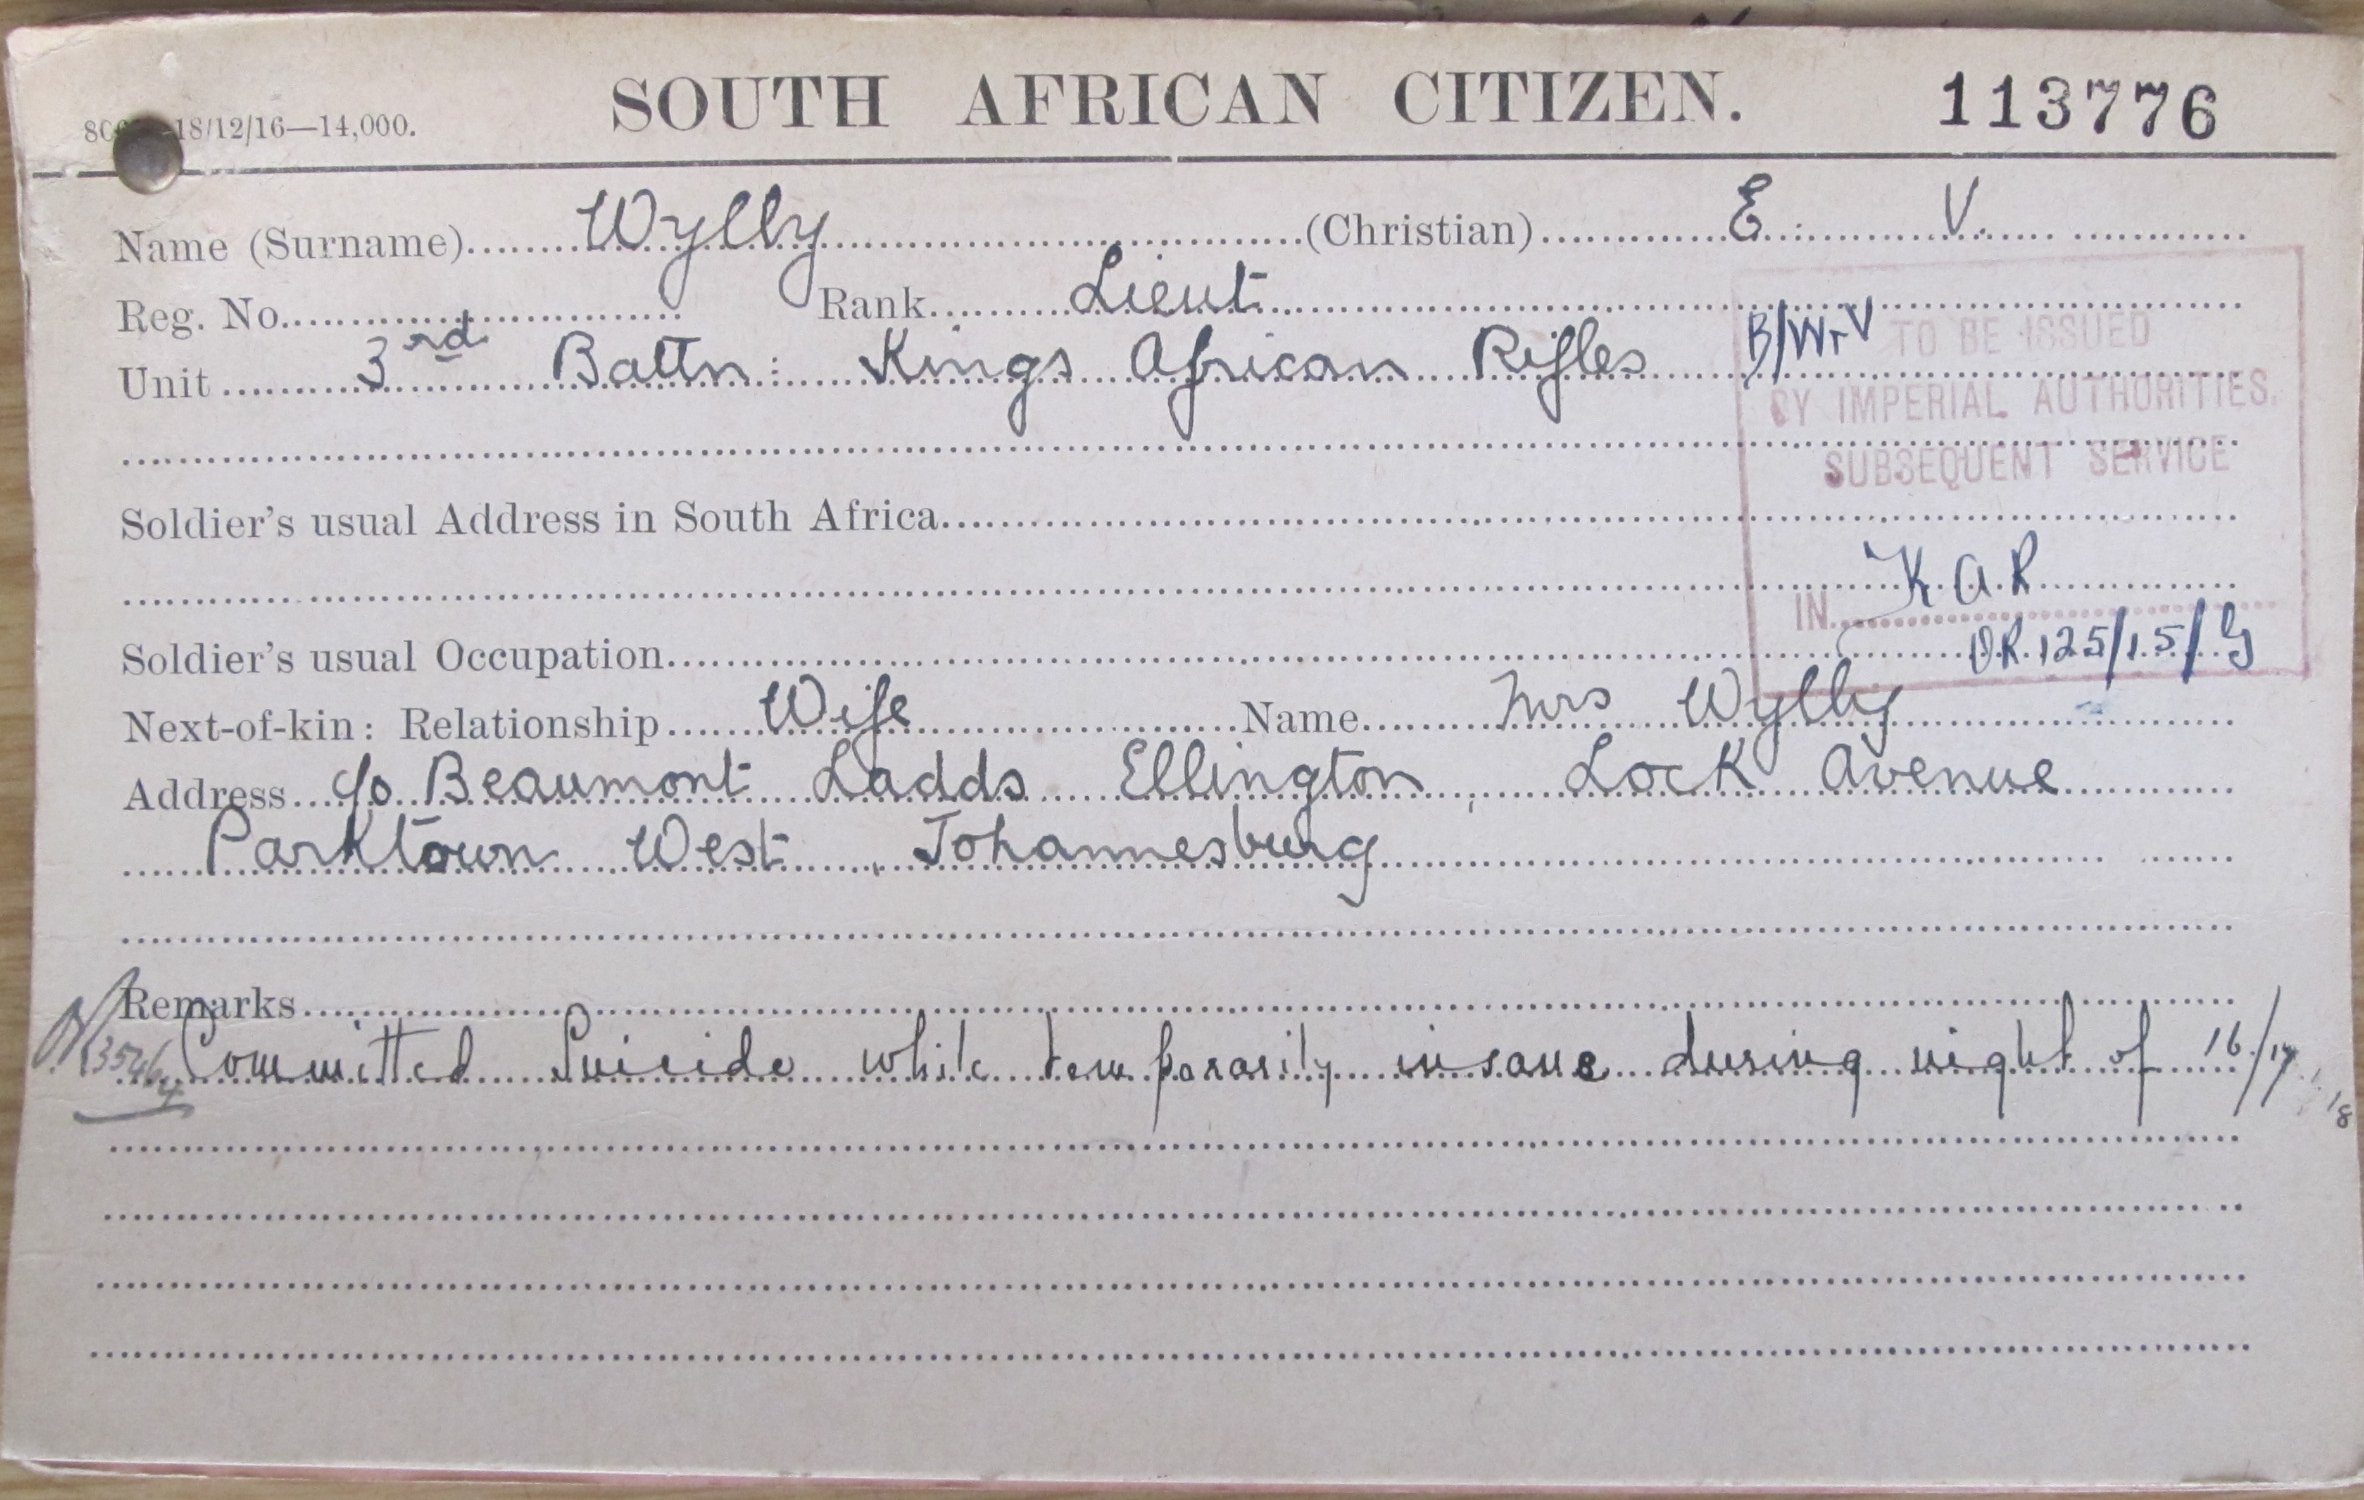 18/12/16—14,000. SOUTH AFRICAN CITIZEN. 113776
Name (Surname) Wylly (Christian) E. V.
Reg. No. Rank Lieut
Unit 3rd Battn: Kings African Rifles B/W+V
TO BE ISSUED
BY IMPERIAL AUTHORITIES.
SUBSEQUENT SERVICE
Soldier's usual Address in South Africa
IN K.A.R
Soldier's usual Occupation
OR 125/15/G
Next-of-kin: Relationship Wife Name Mrs Wylly
Address c/o Beaumont Ladds Ellington, Lock Avenue
Parktown West, Johannesburg
Remarks
Committed Suicide while temporarily insane during night of 16/17